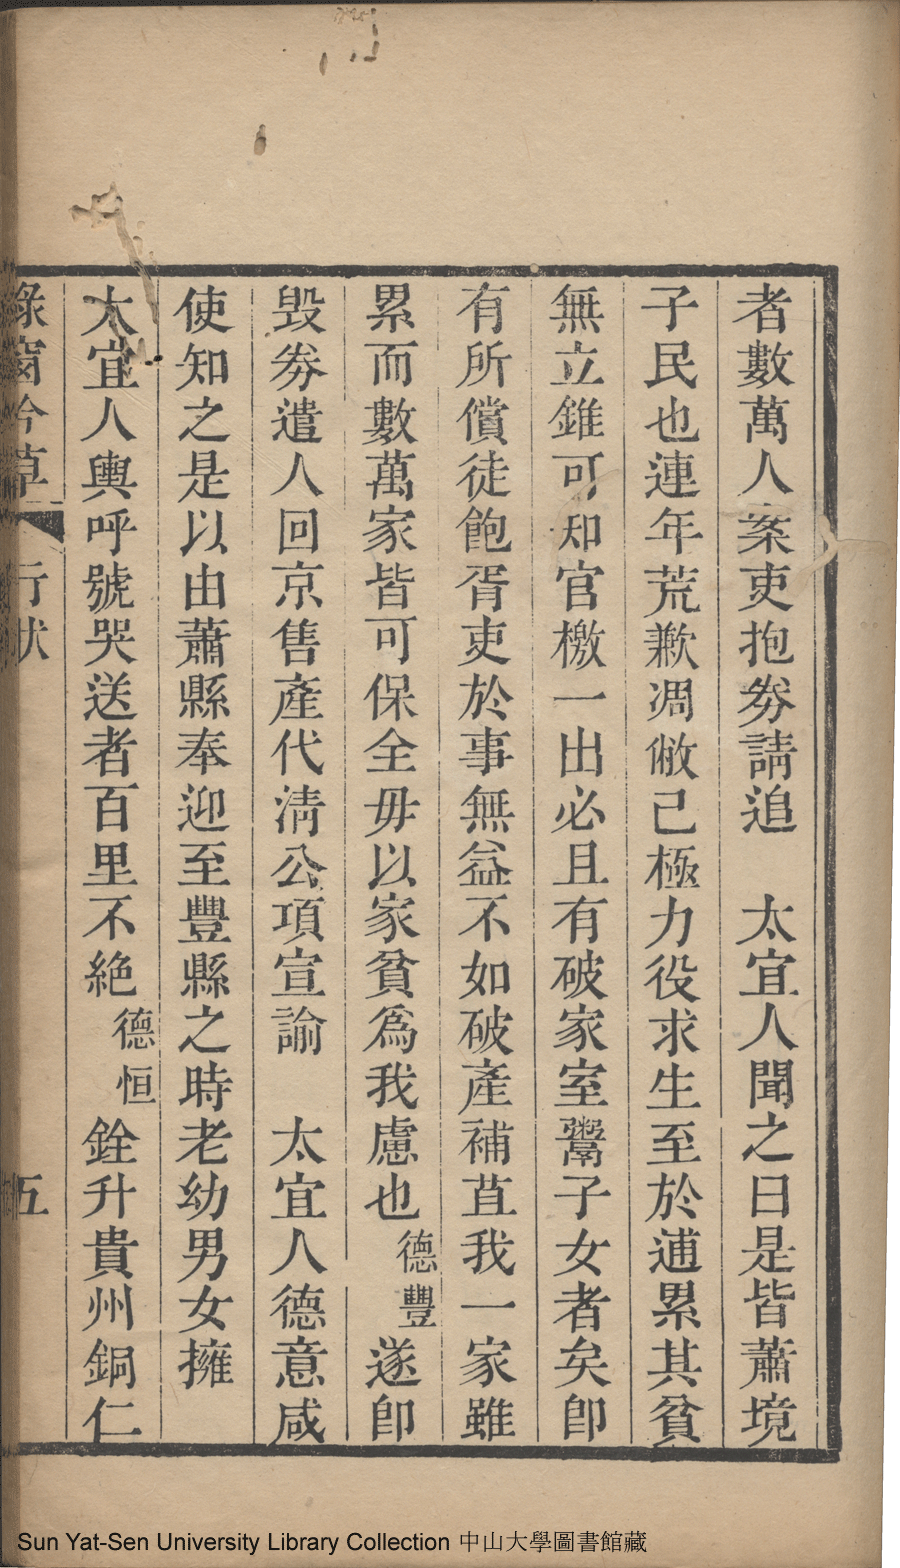 者數萬人案吏抱劵請追　太宜人聞之曰是皆蕭境
子民也連年荒歉凋敝已極力役求生至於逋累其貧
無立錐可知官檄一出必且有破家室鬻子女者矣卽
有所償徒飽胥吏於事無益不如破產補苴我一家雖
累而數萬家皆可保全毋以家貧爲我慮也德豐遂卽
毀劵遣人回京售產代淸公項宣諭　太宜人德意咸
使知之是以由蕭縣奉迎至豐縣之時老幼男女擁
太宜人輿呼號哭送者百里不絶德恒銓升貴州銅仁
綠窗吟草　行狀　五
Sun Yat-Sen University Library Collection 中山大學圖書館藏